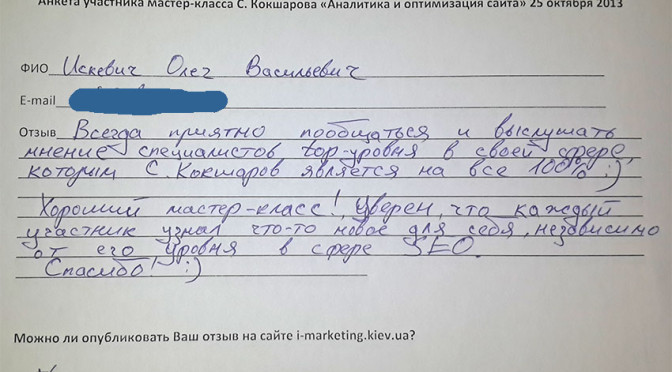 Анкета участника мастер-класса С. Кокшарова «Аналитика и оптимизация сайта» 25 октября 2013
ФИО Искевич Олег Васильевич
E-mail
Отзыв Всегда приятно пообщаться и выслушать
мнение специалистов top-уровня в своей сфере,
которым С. Кокшаров является на все 100% :)
Хороший мастер-класс! Уверен, что каждый
участник узнал что-то новое для себя, независимо
от его уровня в сфере SEO.
Спасибо! :)
Можно ли опубликовать Ваш отзыв на сайте i-marketing.kiev.ua?